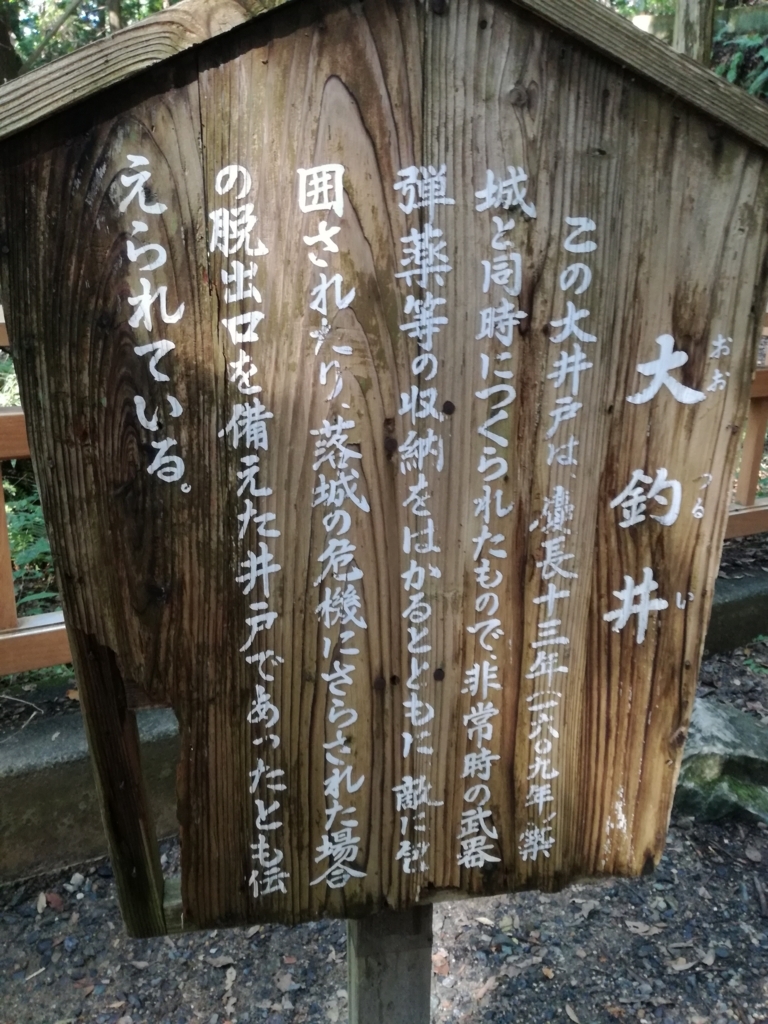 大釣井
おお つる い
この大井戸は、慶長十三年(一六〇九年)築
城と同時につくられたもので、非常時の武器
弾薬等の収納をはかるとともに敵に包
囲されたり、落城の危機にさらされた場合
の脱出口を備えた井戸であったとも伝
えられている。